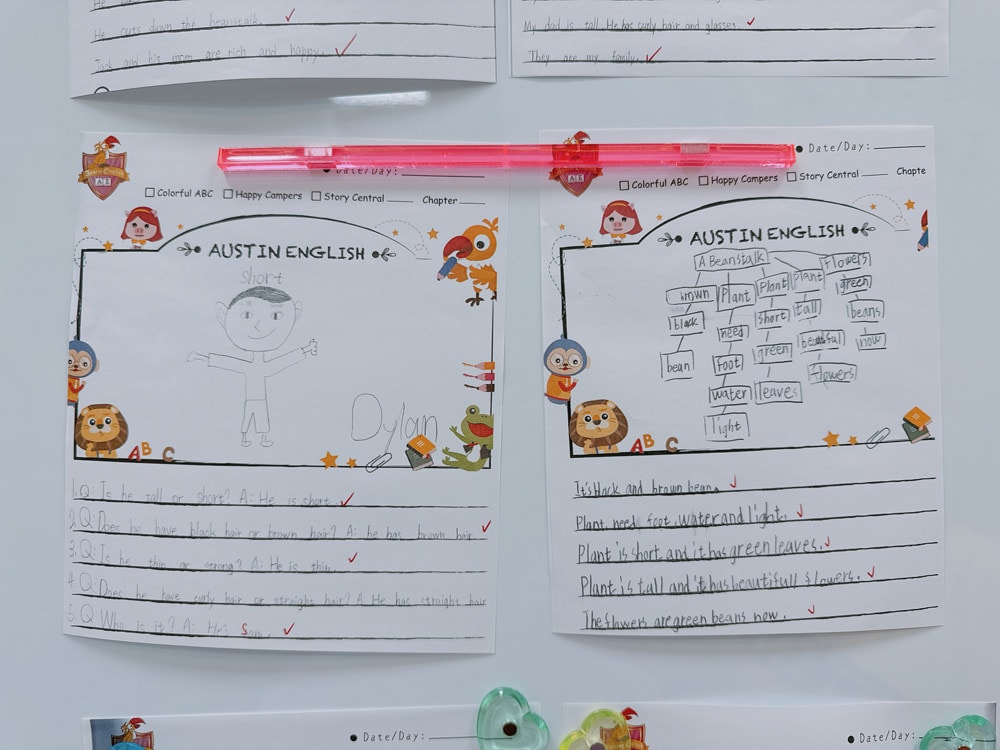 He cuts down the beanstalk.
Jack and his mom are rich and happy.
My dad is tall. He has curly hair and glasses.
They are my family.
Date/Day:
Colorful ABC Happy Campers Story Central Chapter
AUSTIN ENGLISH
Short
Dylan
A B C
1.Q Is he tall or short? A: He is short.
2.Q: Does he have black hair or brown hair? A: he has brown hair.
3.Q: Is he thin or strong? A: He is thin.
4.Q: Does he have curly hair or straight hair? A: He has straight hair
5.Q Who is it? A: He's
Date/Day:
Colorful ABC Happy Campers Story Central Chapte
AUSTIN ENGLISH
A Beanstalk
brown
black
bean
Plant
need
foot
water
light
Plant
short
green
leaves
Plant
tall
beautiful
flowers
Flowers
green
beans
now
A B C
It's black and brown bean.
Plant need foot, water and light.
Plant is short and it has green leaves.
Plant is tall and it has beautifull flowers.
The flowers are green beans now.
Date/Day:
Date/Day: